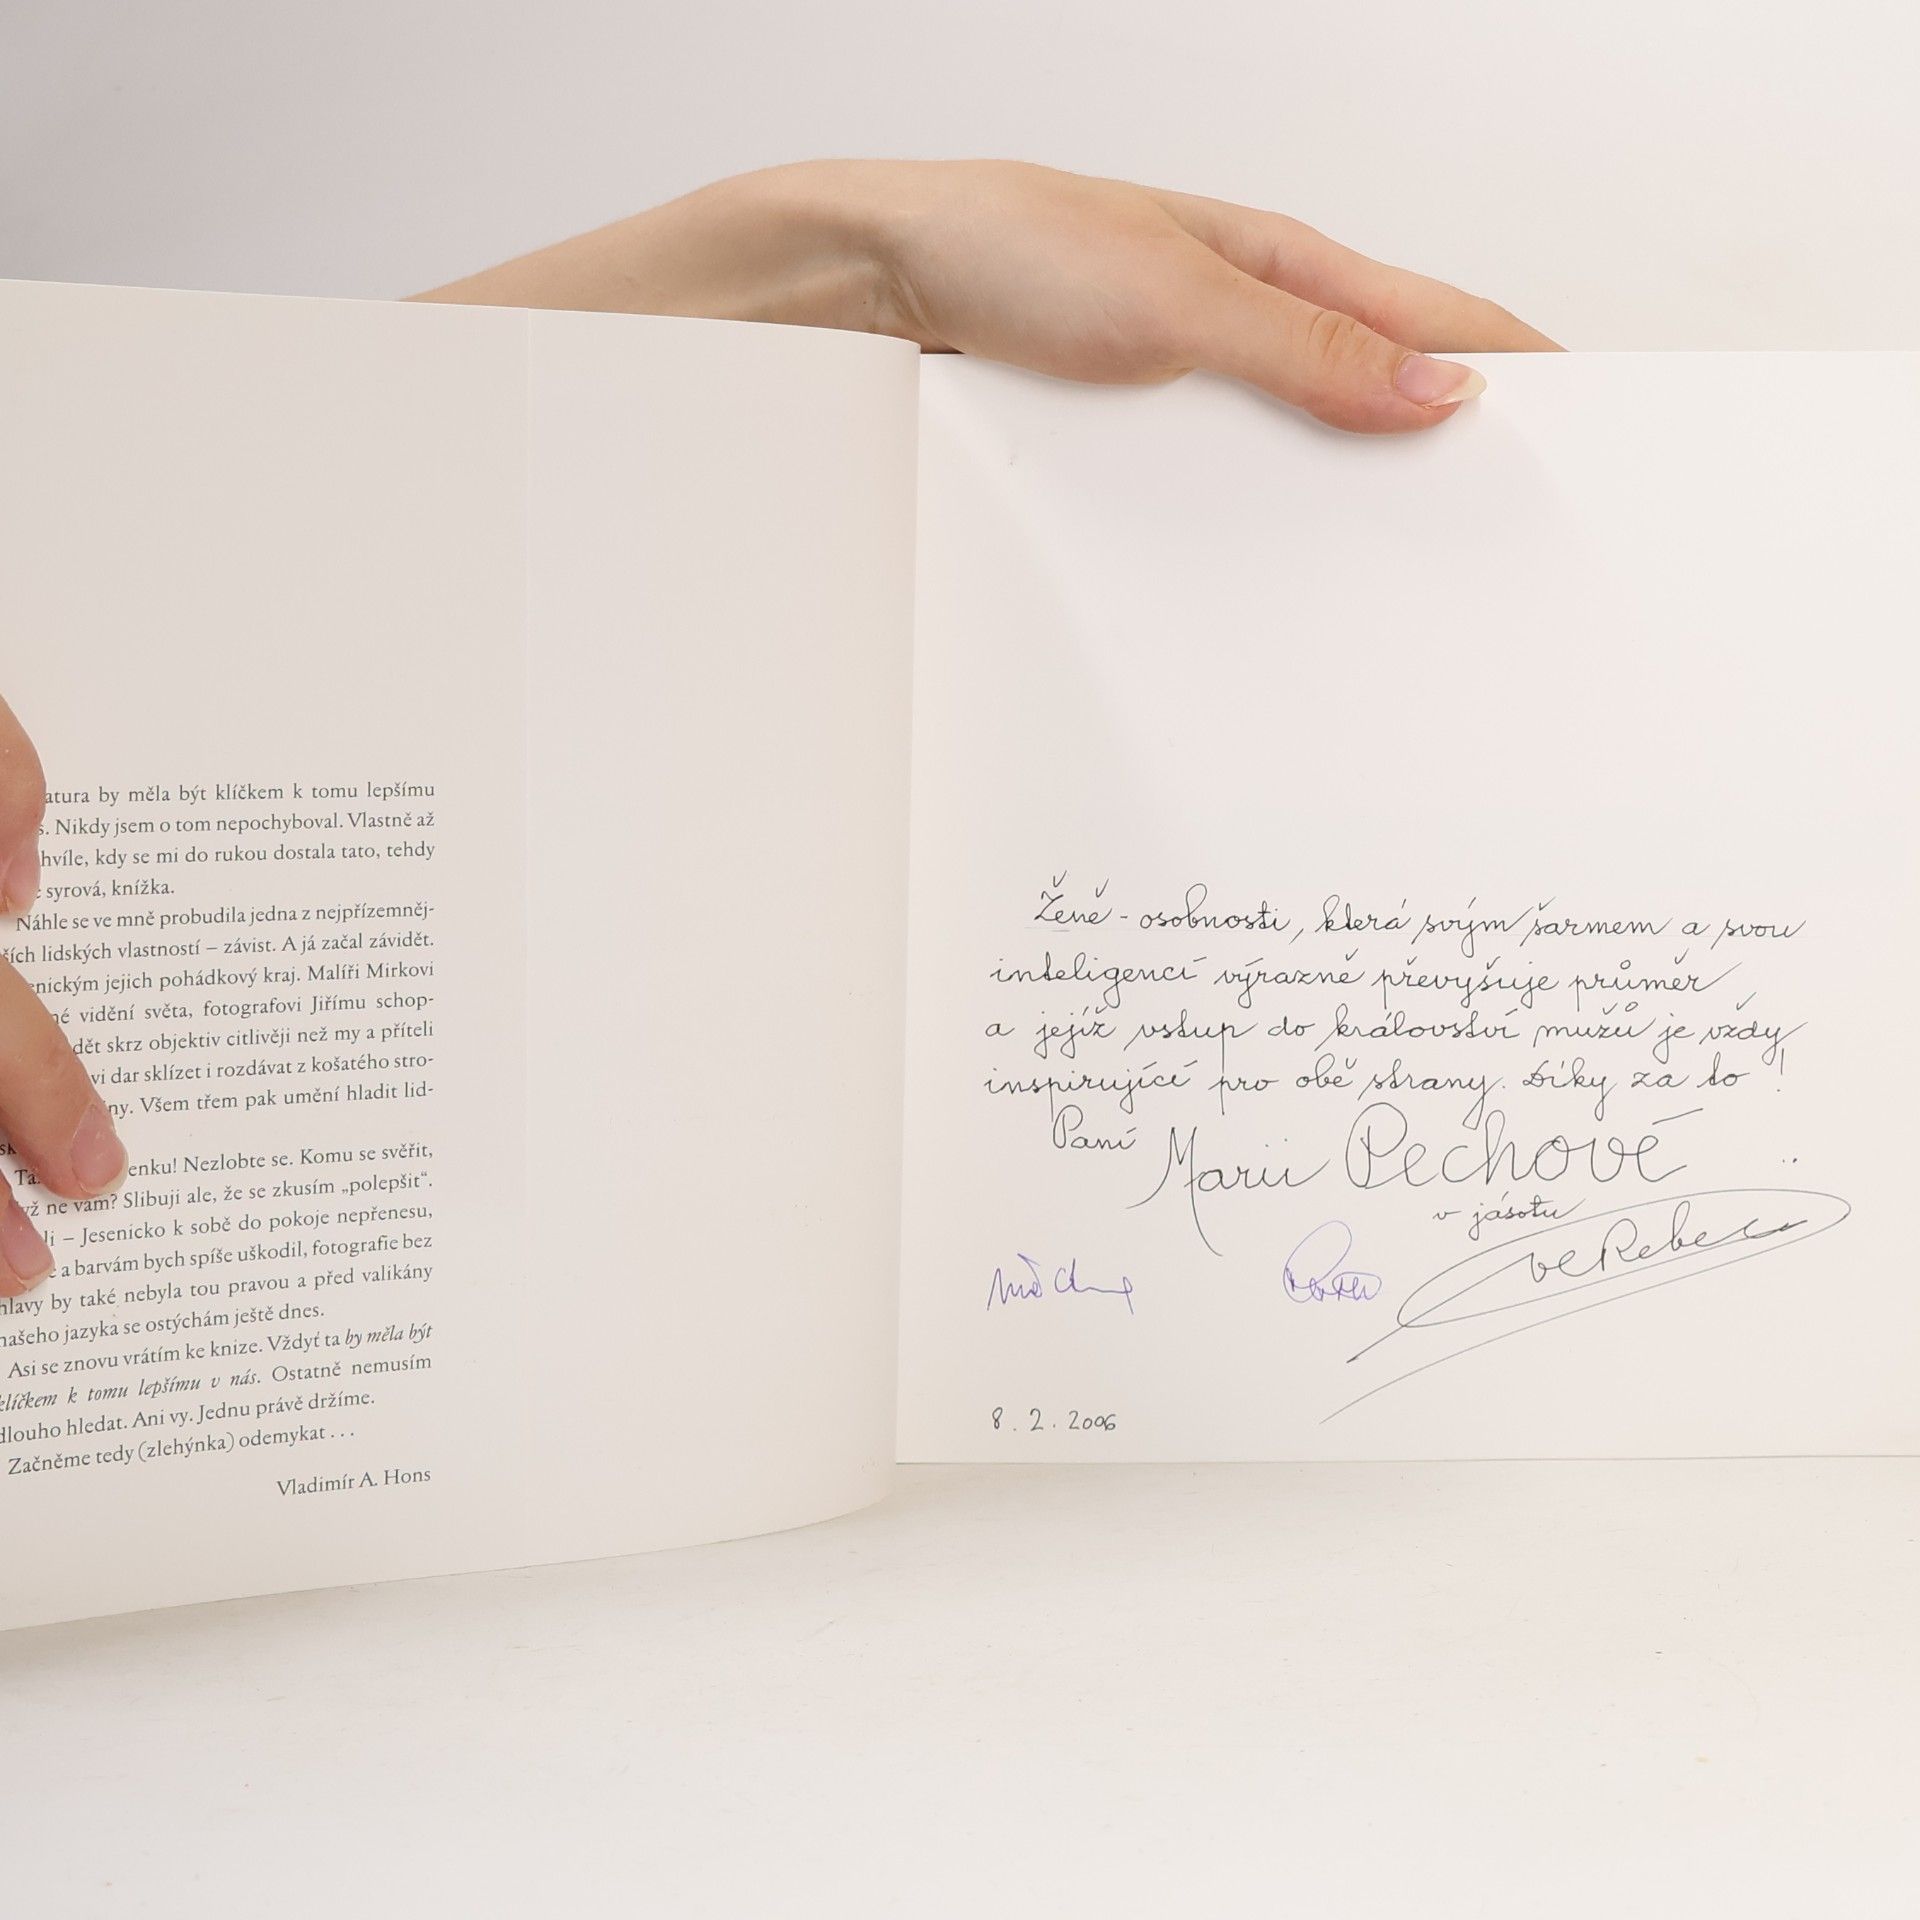 atura by měla být klíčkem k tomu lepšímu
s. Nikdy jsem o tom nepochyboval. Vlastně až
hvíle, kdy se mi do rukou dostala tato, tehdy
syrová, knížka.
Náhle se ve mně probudila jedna z nejpřízemněj-
ších lidských vlastností – závist. A já začal závidět.
enickým jejich pohádkový kraj. Malíři Mirkovi
né vidění světa, fotografovi Jiřímu schop-
dět skrz objektiv citlivěji než my a příteli
vi dar sklízet i rozdávat z košatého stro-
ny. Všem třem pak umění hladit lid-
sk
enku! Nezlobte se. Komu se svěřit,
yž ne vám? Slibuji ale, že se zkusím „polepšit“.
li – Jesenicko k sobě do pokoje nepřenesu,
e a barvám bych spíše uškodil, fotografie bez
hlavy by také nebyla tou pravou a před valikány
našeho jazyka se ostýchám ještě dnes.
Asi se znovu vrátím ke knize. Vždyť ta by měla být
klíčkem k tomu lepšímu v nás. Ostatně nemusím
dlouho hledat. Ani vy. Jednu právě držíme.
Začněme tedy (zlehýnka) odemykat . . .
Vladimír A. Hons
Ženě - osobnosti, která svým šarmem a svou
inteligencí výrazně převyšuje průměr
a jejíž vstup do království mužů je vždy
inspirující pro obě strany. Díky za to!
Paní Marii Pechové
v jásotu
8. 2. 2006